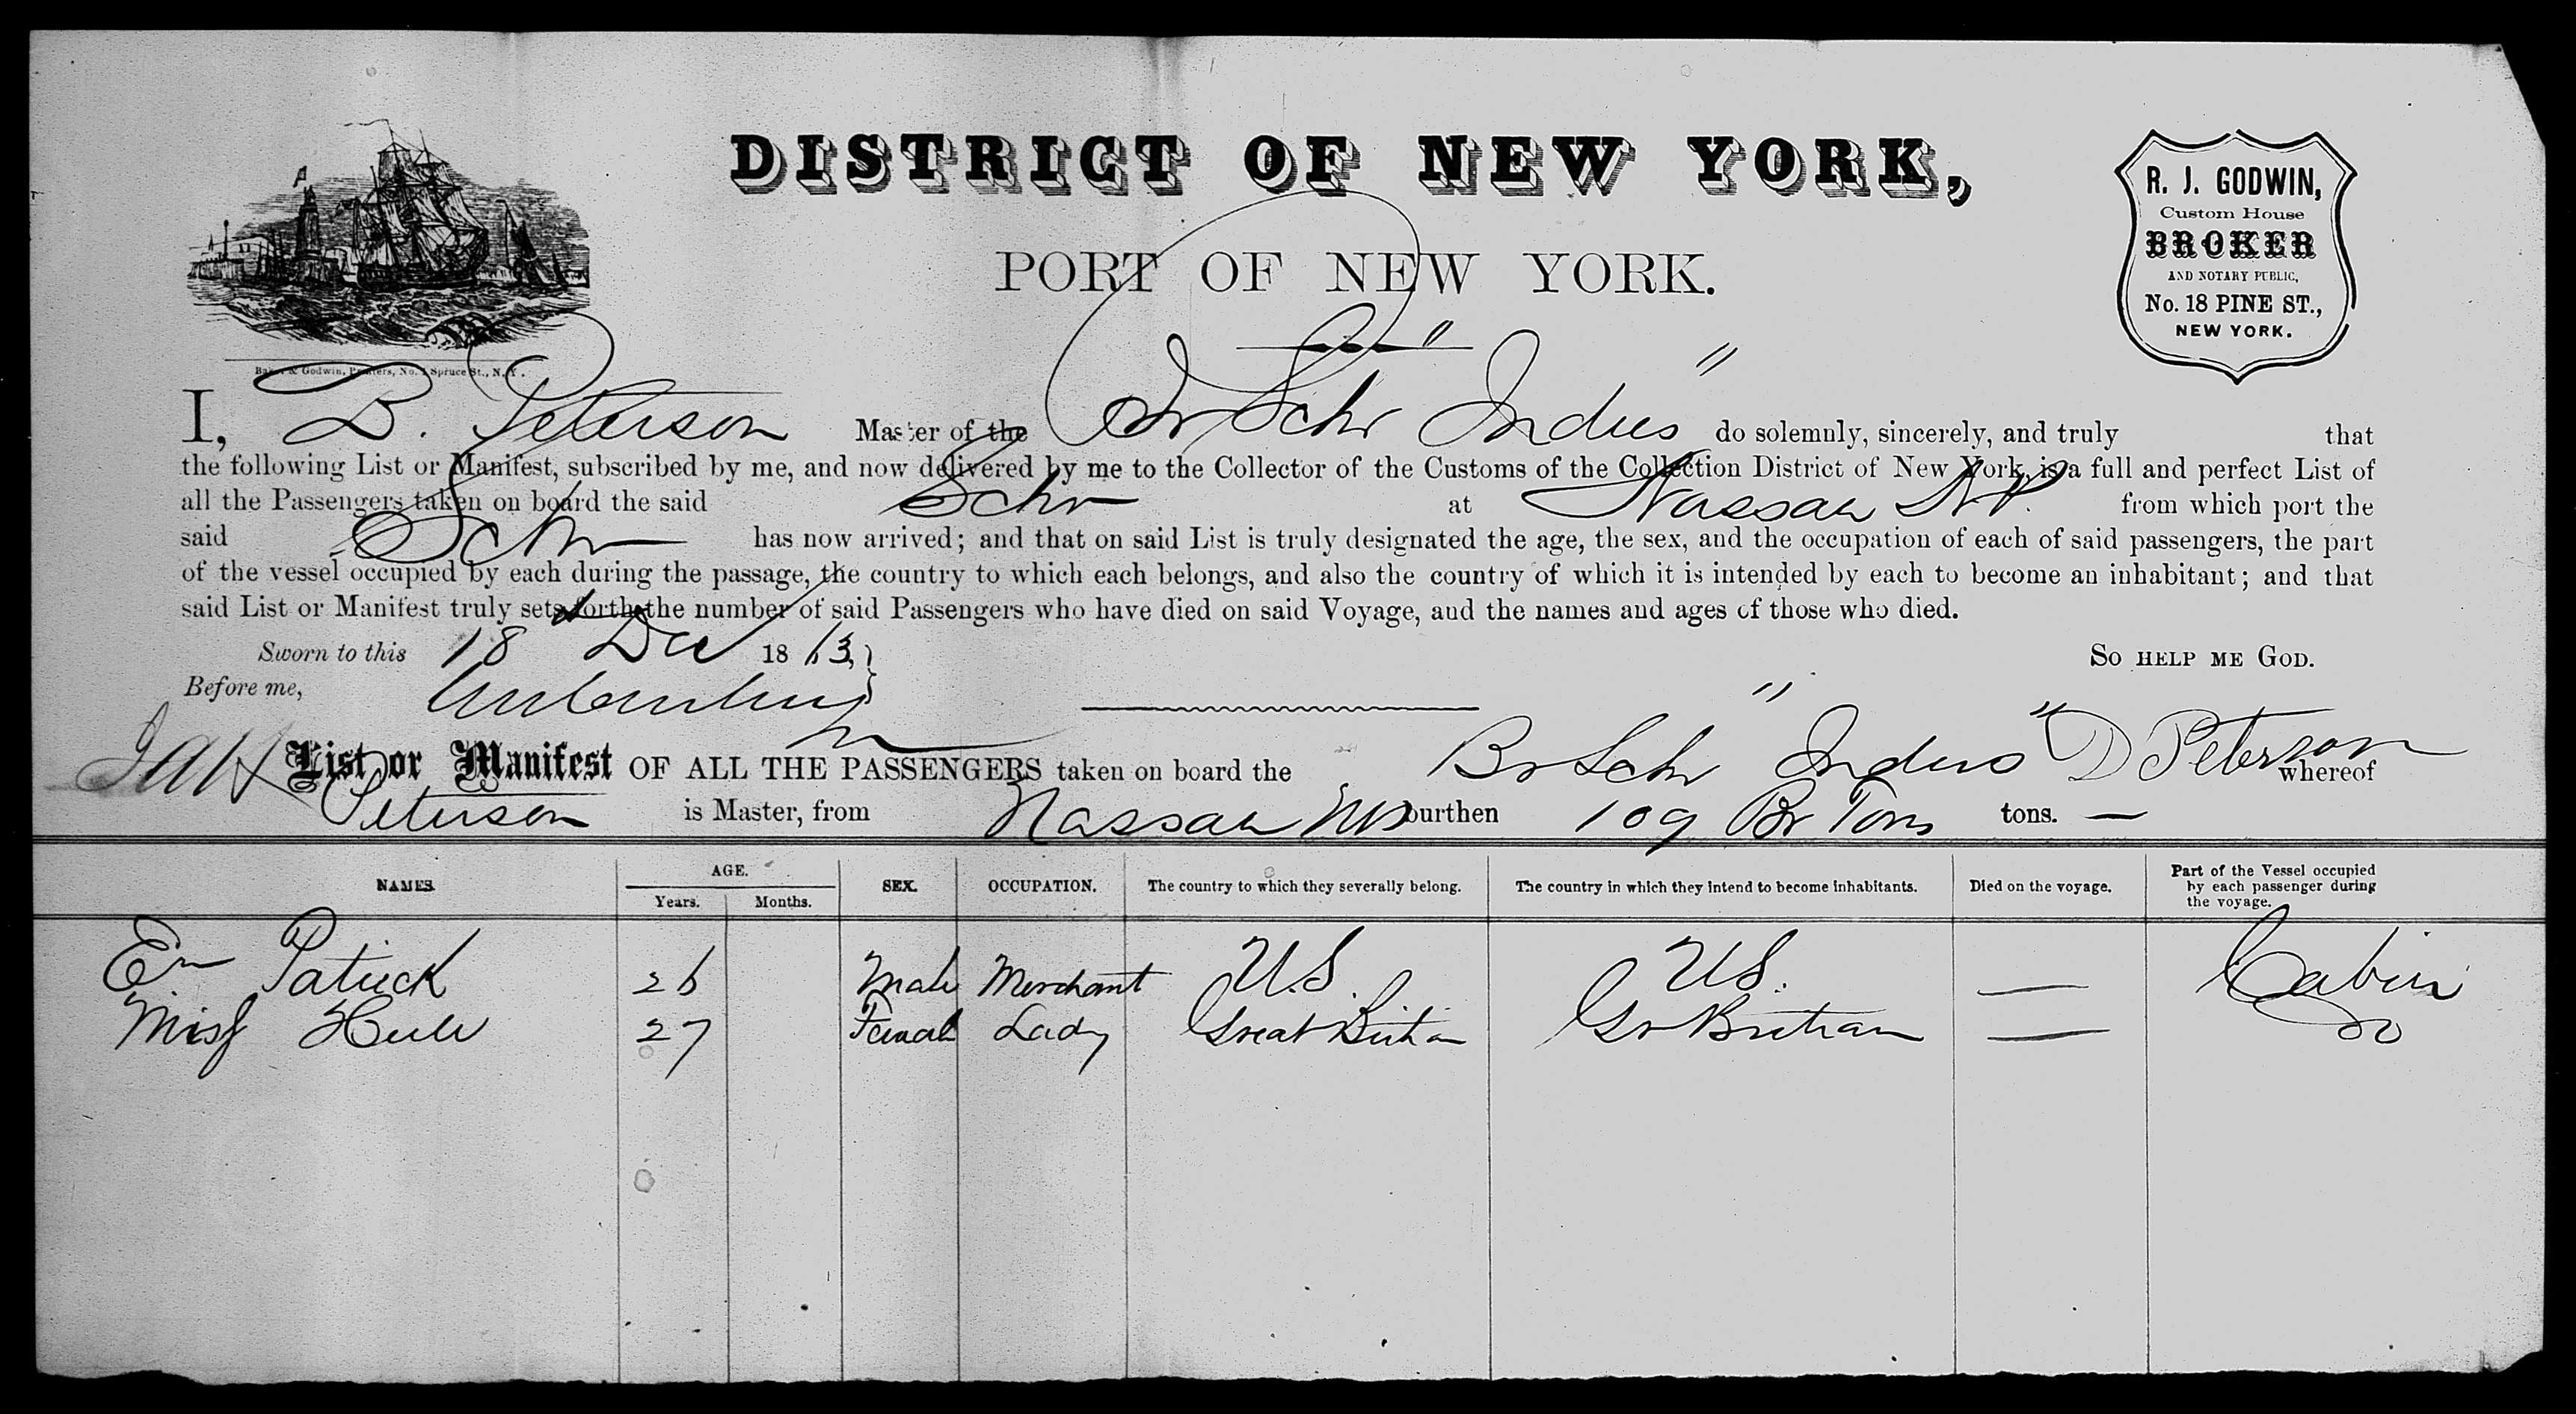 DISTRICT OF NEW YORK,
PORT OF NEW YORK.
R. J. GODWIN,
Custom House
BROKER
AND NOTARY PUBLIC,
No. 18 PINE ST.,
NEW YORK.
Baker & Godwin, Printers, No. 1 Spruce St., N. Y.
I, B. Peterson Master of the Br Schr "Indus" do solemnly, sincerely, and truly that
the following List or Manifest, subscribed by me, and now delivered by me to the Collector of the Customs of the Collection District of New York, is a full and perfect List of
all the Passengers taken on board the said Schr at Nassau N.P. from which port the
said Schr has now arrived; and that on said List is truly designated the age, the sex, and the occupation of each of said passengers, the part
of the vessel occupied by each during the passage, the country to which each belongs, and also the country of which it is intended by each to become an inhabitant; and that
said List or Manifest truly sets forth the number of said Passengers who have died on said Voyage, and the names and ages of those who died.
Sworn to this 18 Dec 1863, SO HELP ME GOD.
Before me,
List or Manifest OF ALL THE PASSENGERS taken on board the Br Schr "Indus" D Peterson whereof
Peterson is Master, from Nassau NP burthen 109 Br Tons tons. —
NAMES. AGE. SEX. OCCUPATION. The country to which they severally belong. The country in which they intend to become inhabitants. Died on the voyage. Part of the Vessel occupied by each passenger during the voyage.
Years. Months.
Em Patrick 26 Male Merchant U.S. U.S. — Cabin
Miss 27 Female Lady Great Britian Gr Britian — Do